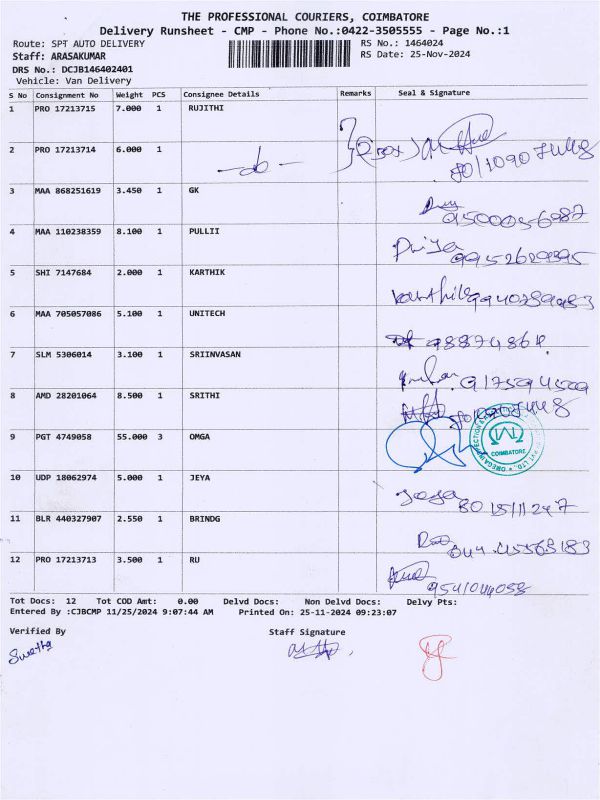 THE PROFESSIONAL COURIERS, COIMBATORE
Delivery Runsheet - CMP - Phone No.:0422-3505555 - Page No.:1
Route: SPT AUTO DELIVERY
RS No.: 1464024
Staff: ARASAKUMAR
RS Date: 25-Nov-2024
DRS No.: DCJB146402401
Vehicle: Van Delivery
S No Consignment No Weight PCS Consignee Details Remarks Seal & Signature
1 PRO 17213715 7.000 1 RUJITHI
2 PRO 17213714 6.000 1
3 MAA 868251619 3.450 1 GK
4 MAA 110238359 8.100 1 PULLII
5 SHI 7147684 2.000 1 KARTHIK
6 MAA 705057086 5.100 1 UNITECH
7 SLM 5306014 3.100 1 SRIINVASAN
8 AMD 28201064 8.500 1 SRITHI
9 PGT 4749058 55.000 3 OMGA
COIMBATORE
10 UDP 18062974 5.000 1 JEYA
11 BLR 440327907 2.550 1 BRINDG
12 PRO 17213713 3.500 1 RU
Tot Docs: 12 Tot COD Amt: 0.00 Delvd Docs: Non Delvd Docs: Delvy Pts:
Entered By :CJBCMP 11/25/2024 9:07:44 AM Printed On: 25-11-2024 09:23:07
Verified By Staff Signature
Swetha